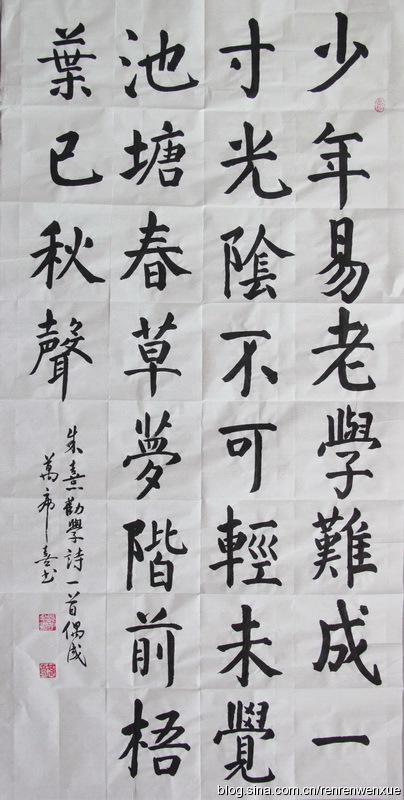 少年易老學難成一
寸光陰不可輕未覺
池塘春草夢階前梧
葉已秋聲
朱熹勸學詩一首偶成
萬
喜书
blog.sina.com.cn/renrenwenxue